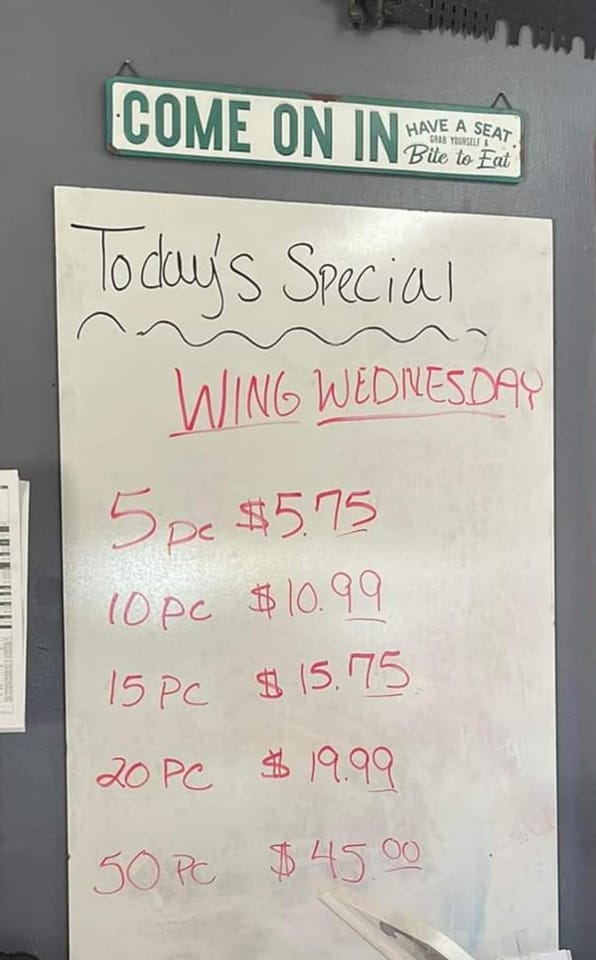 COME ON IN
HAVE A SEAT
GRAB YOURSELF A
Bite to Eat
Today's Special
WING WEDNESDAY
5 pc $5.75
10 pc $10.99
15 PC $15.75
20 PC $19.99
50 PC $45.00